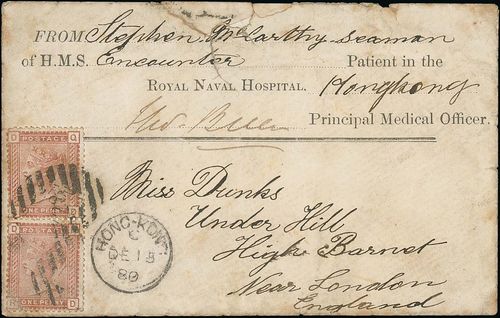 FROM Stephen McCarthy seaman
of H.M.S. Encounter Patient in the
ROYAL NAVAL HOSPITAL. Hongkong
Principal Medical Officer.
Miss Dunks
Under Hill
High Barnet
Near London
England
D Q
POSTAGE
ONE PENNY
POSTAGE
ONE PENNY
D
HONG-KONG
DE 13
80